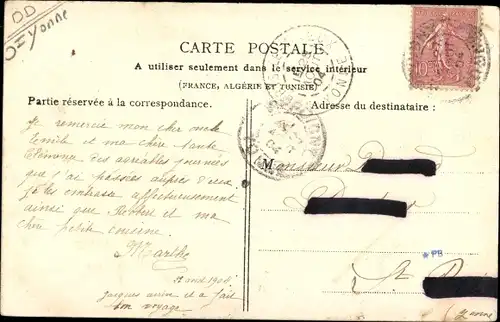 OD
Yonne
CARTE POSTALE
A utiliser seulement dans le service intérieur
(FRANCE, ALGÉRIE ET TUNISIE)
Partie réservée à la correspondance.
Adresse du destinataire :
Je remercie mon cher oncle
Emile et ma chère tante
Clémence des agréables journées
que j'ai passées auprès d'eux.
Je les embrasse affectueusement
ainsi que Robert et ma
chère petite cousine.
Marthe
M
Monsieur
*PB
St
Août 1904
Jacques arrive et a fait
bon voyage
(Yonne